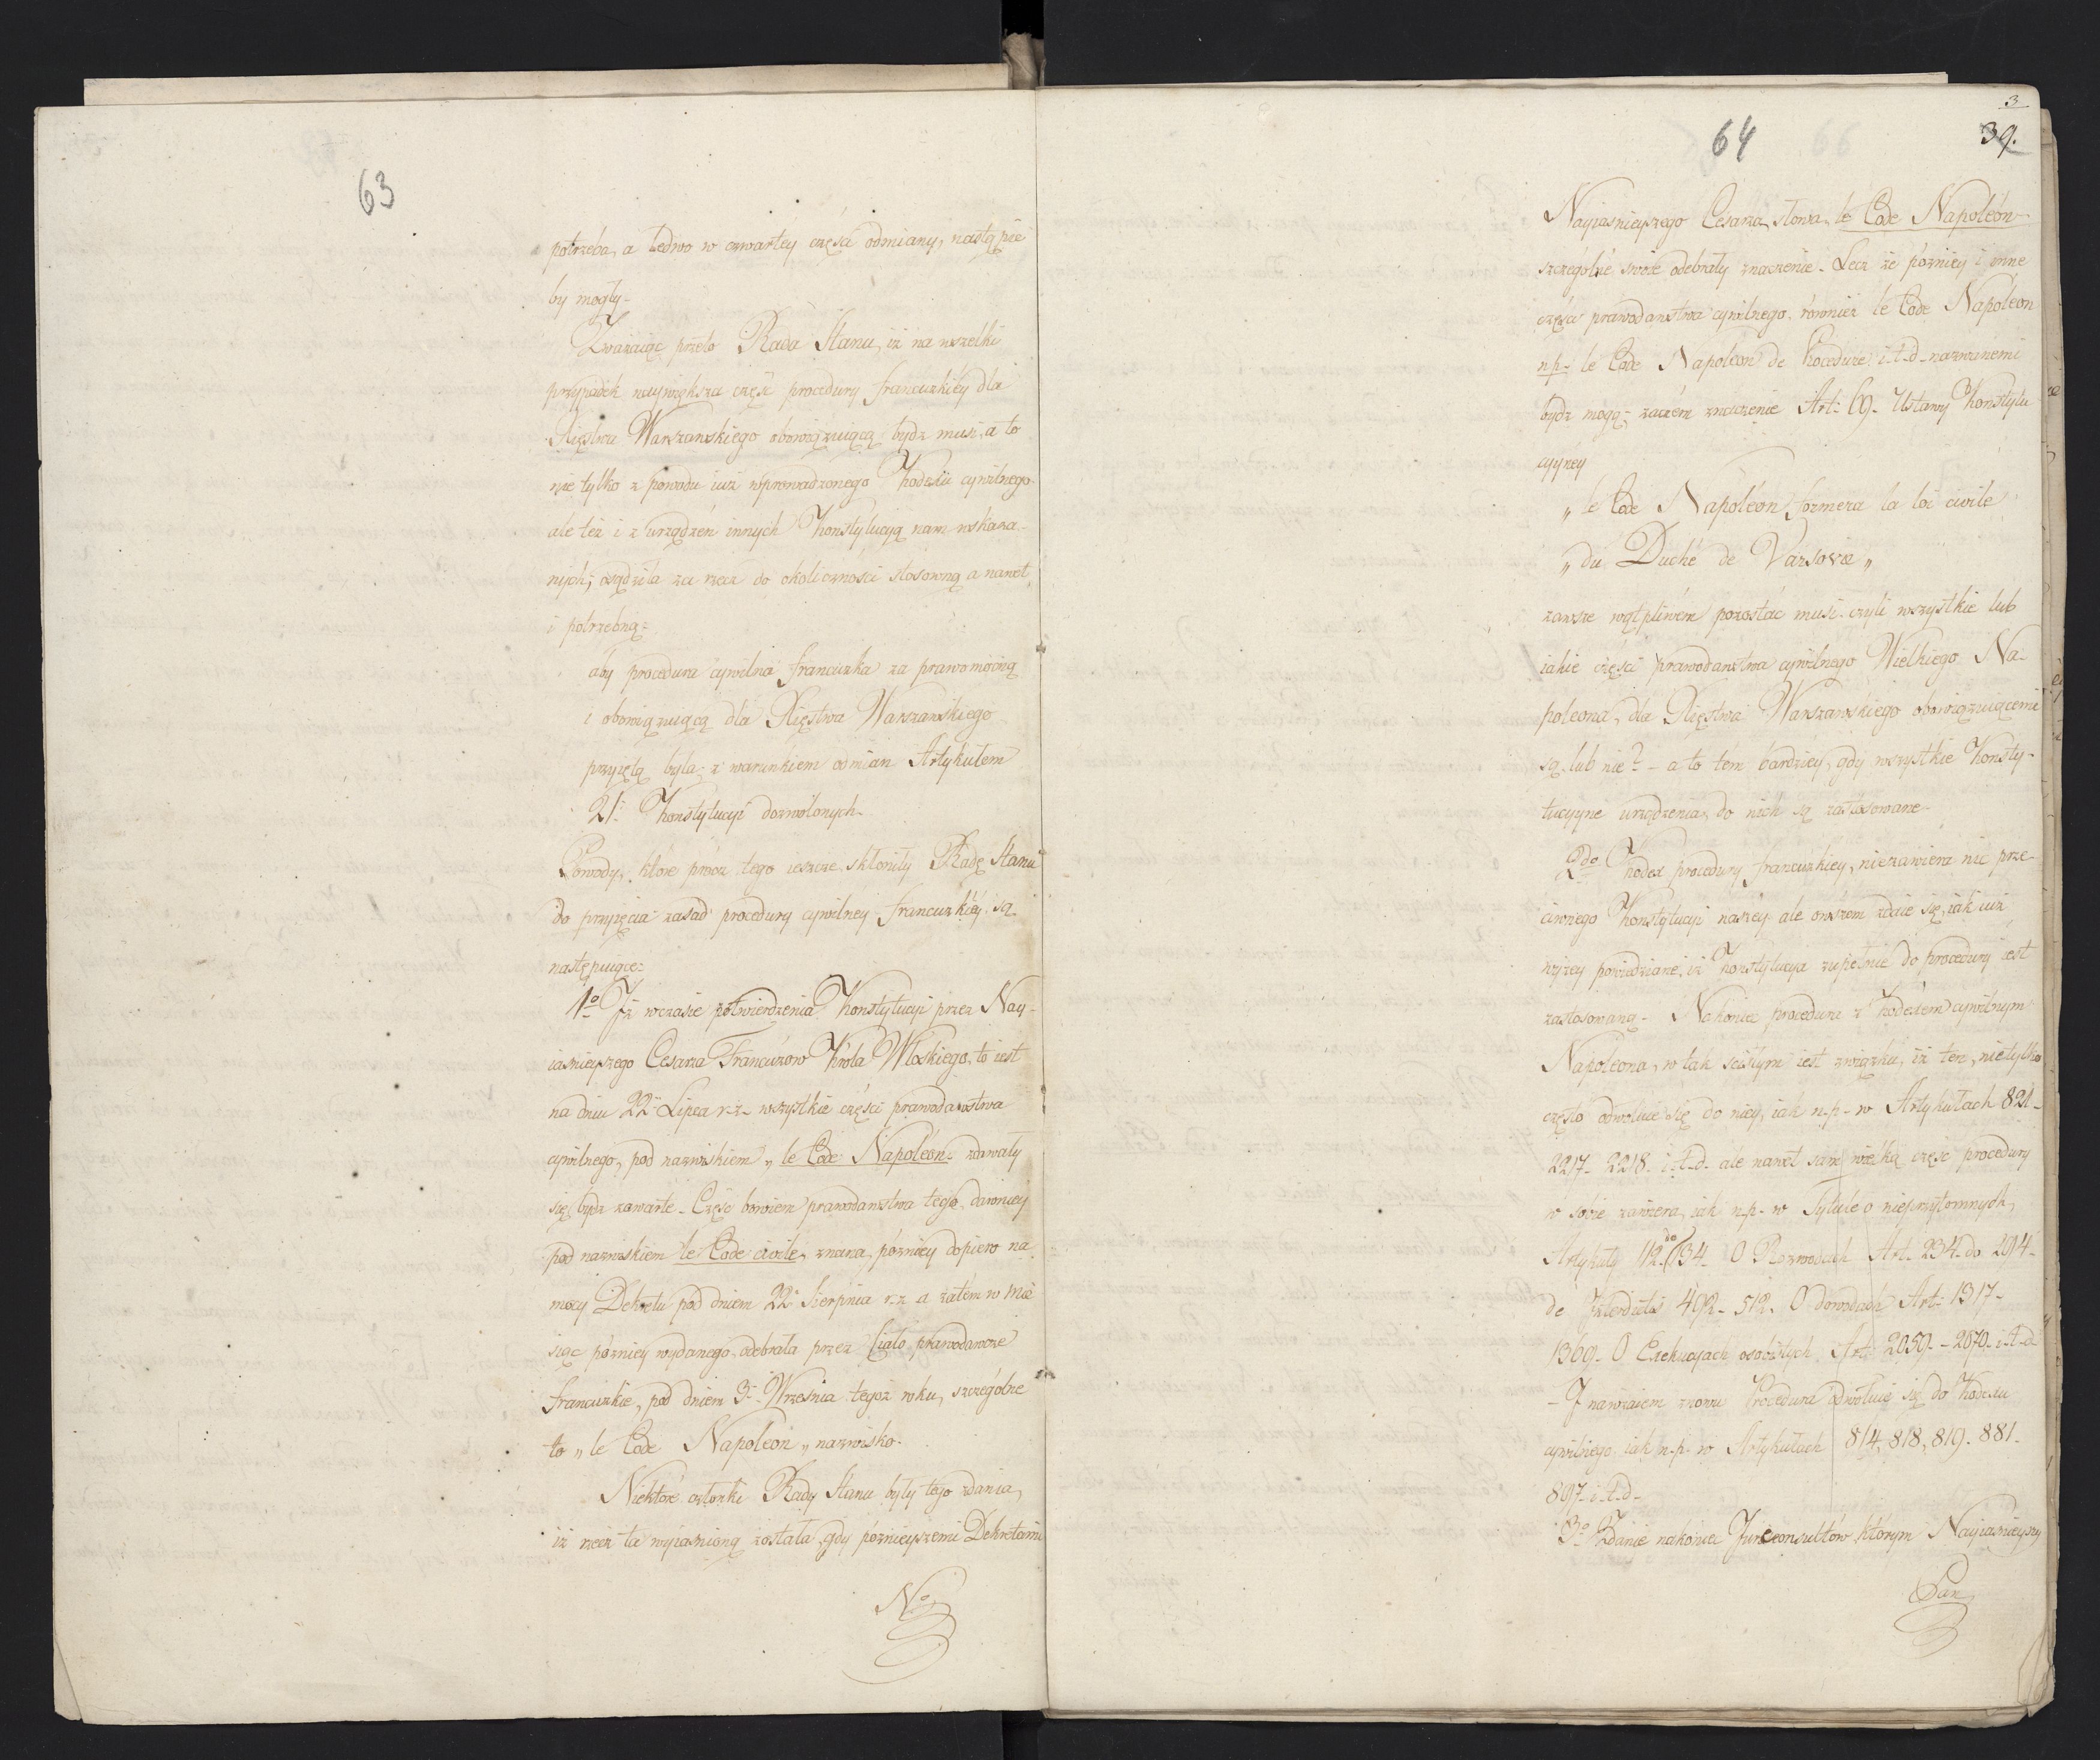 63
potrzeba, a ledwo w czwartéy części odmiany, nastąpić
by mogły.
Zważaiąc przeto Rada Stanu, iż na wszelki
przypadek naywiększa część procedury francuzkiéy dla
Xięstwa Warszawskiego obowiązuiącą bydź musi, a to
nie tylko z powodu iuż wprowadzonego Kodexu cywilnego
ale też i z urządzeń innych Konstytucyą nam wskaza-
nych; osądziła za rzecz do okoliczności stosowną a nawet
i potrzebną:
aby procedura cywilna francuzka za prawomocną
i obowiązuiącą dla Xięstwa Warszawskiego
przyiętą była, z warunkiem odmian Artykułem
21. Konstytucyi dozwolonych.
Powody, które prócz tego ieszcze skłoniły Radę Stanu
do przyięcia zasad procedury cywilnéy francuzkiéy są
następuiące:
1º Iż wczasie potwierdzenia Konstytucyi przez Nay-
iasnieyszego Cesarza Francuzow Króla Włoskiego, to iest
na dniu 22 Lipca r.z. wszystkie części prawodawstwa
cywilnego, pod nazwiskiem „ le Code Napoléon- zdawały
się bydź zawarte. Część bowiem prawodawstwa tego dawniey
pod nazwiskiem le Code civile, znana, pózniey dopiero na
mocy Dekretu pod dniem 22 Sierpnia r.z. a zatem w mie
siąc pózniey wydanego, odebrała przez Ciało prawodawcze
francuzkie, pod dniem 3. Września tegoż roku, szczególne
to „ le Code Napoleon „ nazwisko.
Niektóre członki Rady Stanu były tego zdania,
iż rzecz ta wyiasnioną została, gdy póznieyszemi Dekretami
Nº
3
64
39.
Nayiasnieyszego Cesarza, słowa, le Code Napoléon-
szczególne swoie odebrały znaczenie. Lecz że pózniey i inne
części prawodawstwa cywilnego, również le Code Napoleon
n.p. le Code Napoleon de Procedure i.t.d. nazwanemi
bydz mogą; zaczém znaczenie Art: 69. Ustawy Konstytu
cyyney
„ le Code Napoléon formera la loi civile
„ du Duché de Varsovie „
zawsze wątpliwém pozostać musi. czyli wszystkie lub
iakie części prawodawstwa cywilnego Wielkiego Na-
poleona, dla Xięstwa Warszawskiego obowiązuiącemi
są lub nie? - a to tém bardziéy, gdy wszystkie Konsty-
tucyyne urządzenia, do nich są zastosowane.
2do Kodex procedury francuzkiey, niezawiera nic prze-
ciwnego Konstytucyi naszéy ale owszem zdaie się, iak iuż
wyzey powiedziane, iż Konstytucya zupełnie do procedury iest
zastosowaną. Nakoniec procedura z Kodexem cywilnym
Napoleona, w tak scisłym iest związku, iż ten, nietylko
często odwołuie się do niéy, iak n.p. w Artykułach 821.
2217. 2218. i.t.d. ale nawet sam wielką część procedury
w sobie zawiera, iak n.p. w Tytule o nieprzytomnych,
Artykuły 112. do 134. O Rozwodach Art. 234. do 294.
de Interdictis 492. 512. O dowodach Art: 1317.
1369. O Exekucyach osobistych Art. 2059. - 2070. i.t.d
- I nawzaiem znowu Procedura odwołuie się do Kodexu
cywilnego iak n.p. w Artykułach 814, 818, 819. 881.
897. i.t.d.
3º Zdanie nakoniec Jurisconsultów którym Nayiasnieyszy
Pan